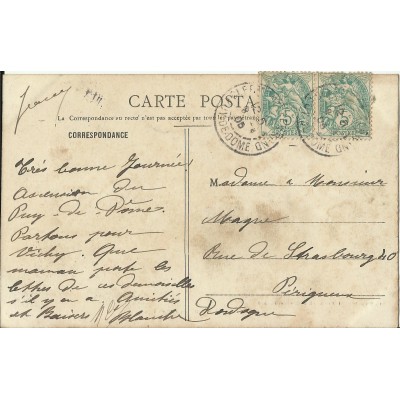 CARTE POSTA
La Correspondance au recto n'est pas acceptée par tous
CORRESPONDANCE
Très bonne Journée!
Ascension du
Puy-de-Dôme.
Partons pour
Vichy. Que
maman porte les
lettres de ces demoiselles
s'il y en a. Amitiés
et Baisers Blanche
Madame & Monsieur
Magne
Rue de Strasbourg
Périgueux
Dordogne
PUY-DE-DOME